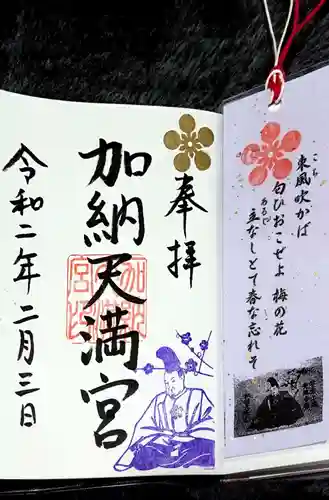 奉拝
加納天満宮
令和二年二月三日
加納天満宮印
東風吹かば
こち
匂ひおこせよ 梅の花
あるじ
主なしとて春な忘れそ